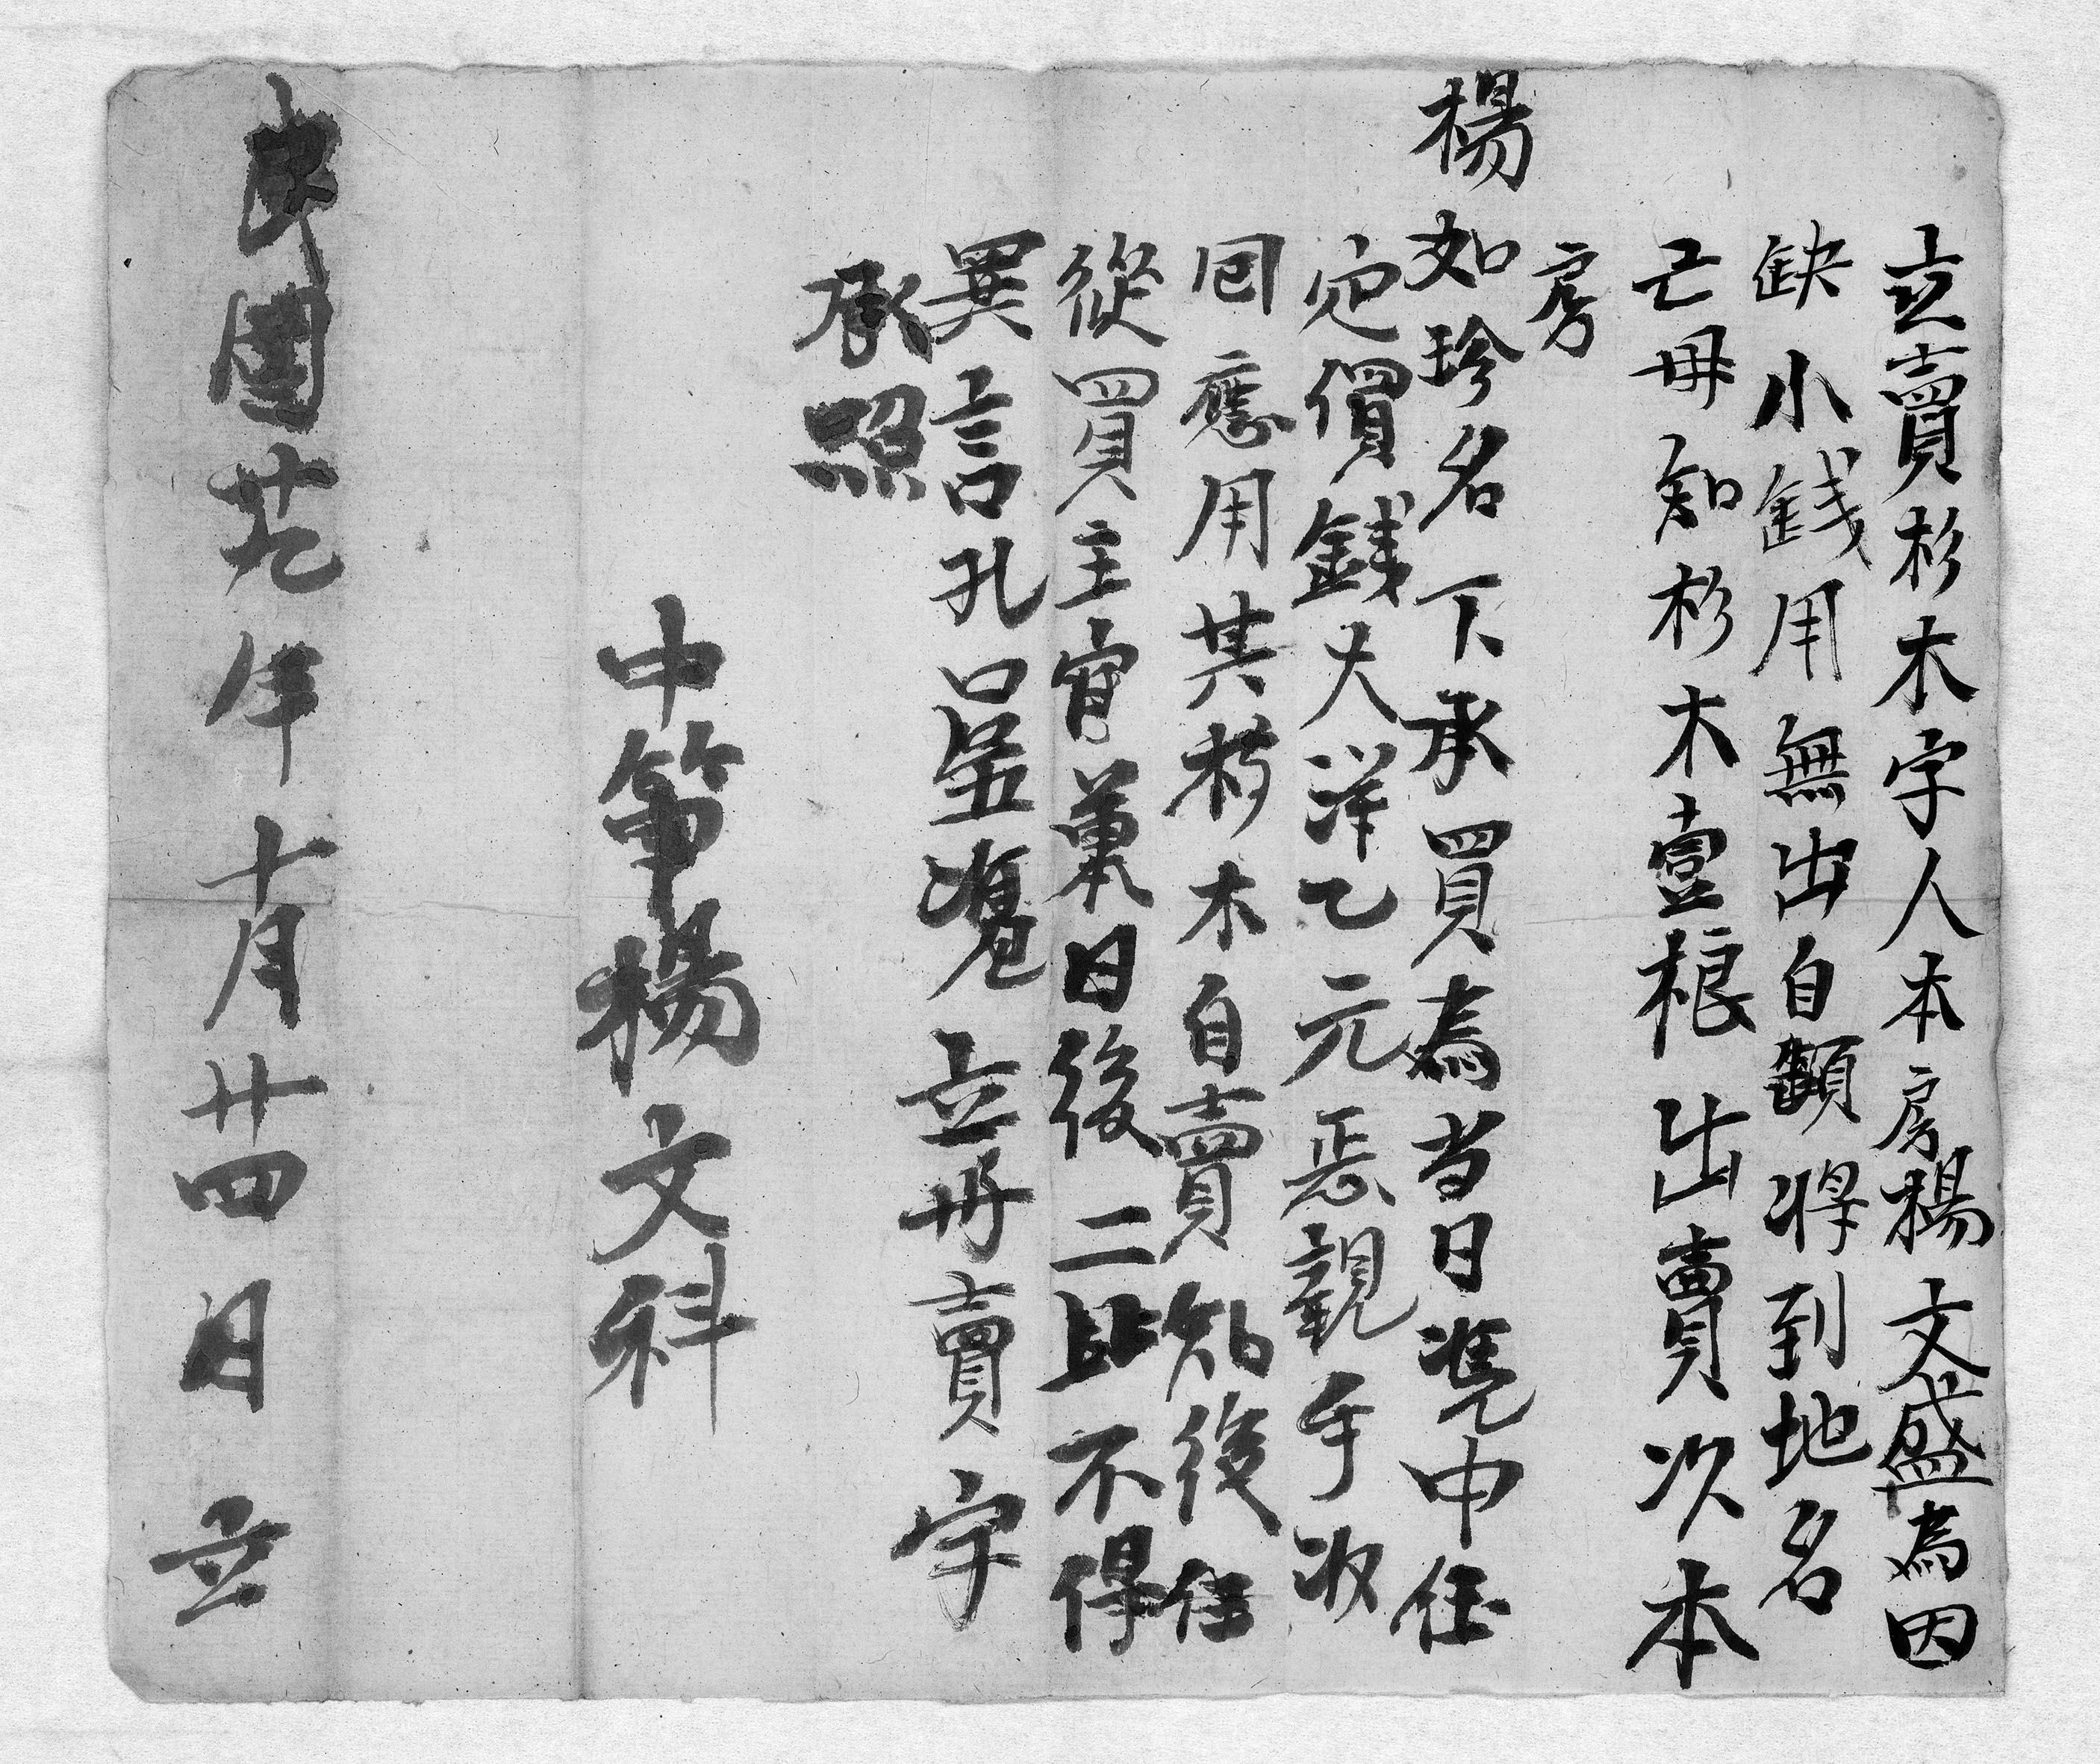 立賣杉木字人本房楊文盛為因
缺少錢用無出自願將到地名
亡毋知杉木壹根出賣次本
房
楊如珍名下承買為当日凴中任
定價錢大洋乙元惡親手汝
囘應用其杉木自賣知後任
從買主官業日後二比不得
異言孔口無凴立毋賣字
承照
中筆楊文科
民國廿九年十月廿四日立